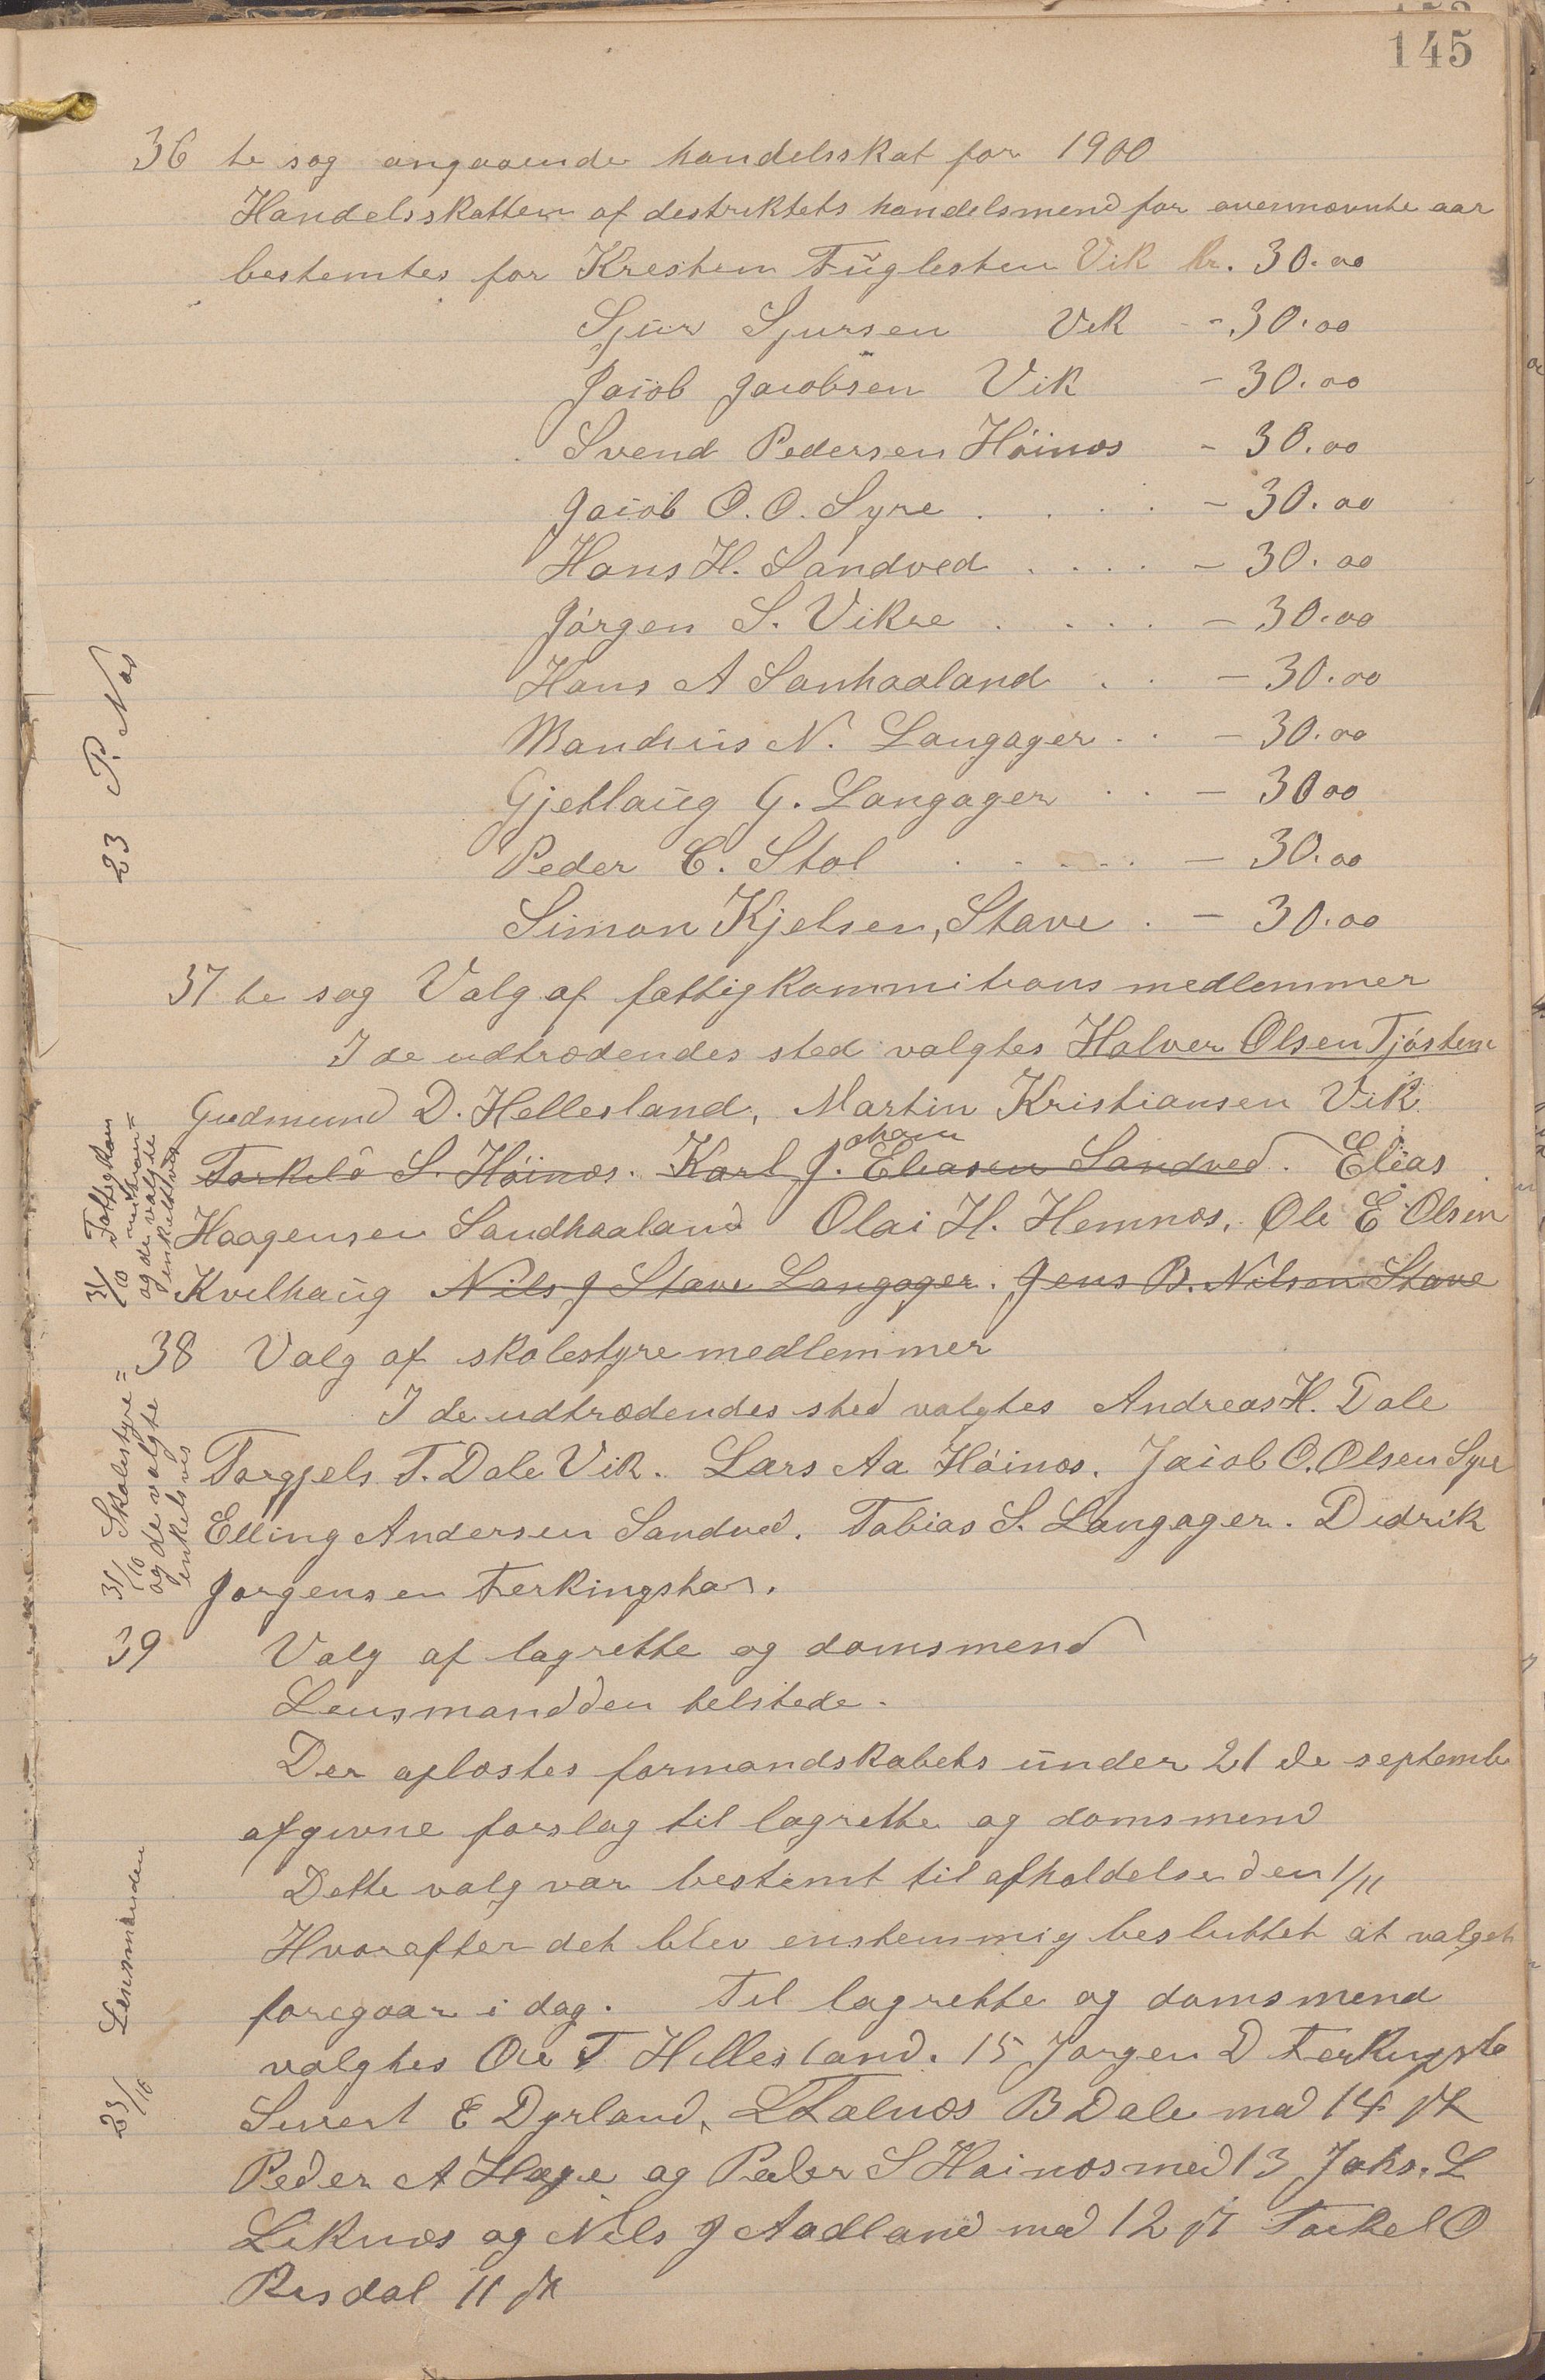 145
36 te sag angaaende handelsskat for 1900
Handelsskatten af destriktets handelsmend for ovennævnte aar
bestemtes for Kresten Fuglesten Vik kr. 30.00
Sjur Sjursen Vik - 30.00
Jacob Jacobsen Vik - 30.00
Svend Pedersen Höinæs - 30.00
Jacob O. O. Syre . . . . - 30.00
Hans H. Sandved . . . . - 30.00
Jörgen S. Vikre . . . . - 30.00
Hans A Sanhaaland . . - 30.00
Mandius N. Langager . . - 30.00
Gjetlaug G. Langager . . - 30 00
Peder C. Stol . . . . . - 30.00
Simon Kjelsen, Stave . - 30.00
23 P. Næs
37 te sag Valg af fattigkommitions medlemmer
I de udtrædendes sted valgtes Halver Olsen Tjösten
Gudmund D. Hellesland, Martin Kristiansen Vik
Torkel S. Höinæs. Karl Johan Eliasen Sandved. Elias
Haagensen Sandhaaland Olai H. Hemnes, Ole E Olsen
Kvilhaug Nils J Stave Langager. Jens B. Nilsen Stave
31/10 Fattigkom
og de valgte
enkeltvis
38 Valg af skolestyremedlemmer
I de udtrædendes sted valgtes Andreas H. Dale
Torgjels T. Dale Vik. Lars Aa Höinæs. Jacob O. Olsen Syre
Elling Andersen Sandved. Tobias S. Langager. Didrik
Jorgensen Ferkingstad.
31/10 Skolestyre=
og de valgte
enkelvis
39 Valg af lagrette og domsmend
Lensmandden telstede.
Der oplæstes formandskabets under 21 de septembe
afgivne forslag til lagrette og domsmend
Dette valg var bestemt til afholdelse den 1/11
Hvorefter det blev enstemmig besluttet at valget
foregaar i dag. Til lagrette og domsmend
valgtes Ole T Hillesland. 15 Jorgen D Ferkingsta
Sivert E Dyrland, L Falnæs B Dale med 14 st
Peder A Hage og Peder S Hoinæs med 13 Johs. L
Liknæs og Nils J Aadland med 12 st Torkel O
Risdal 11 st
23/10 Lensmanden